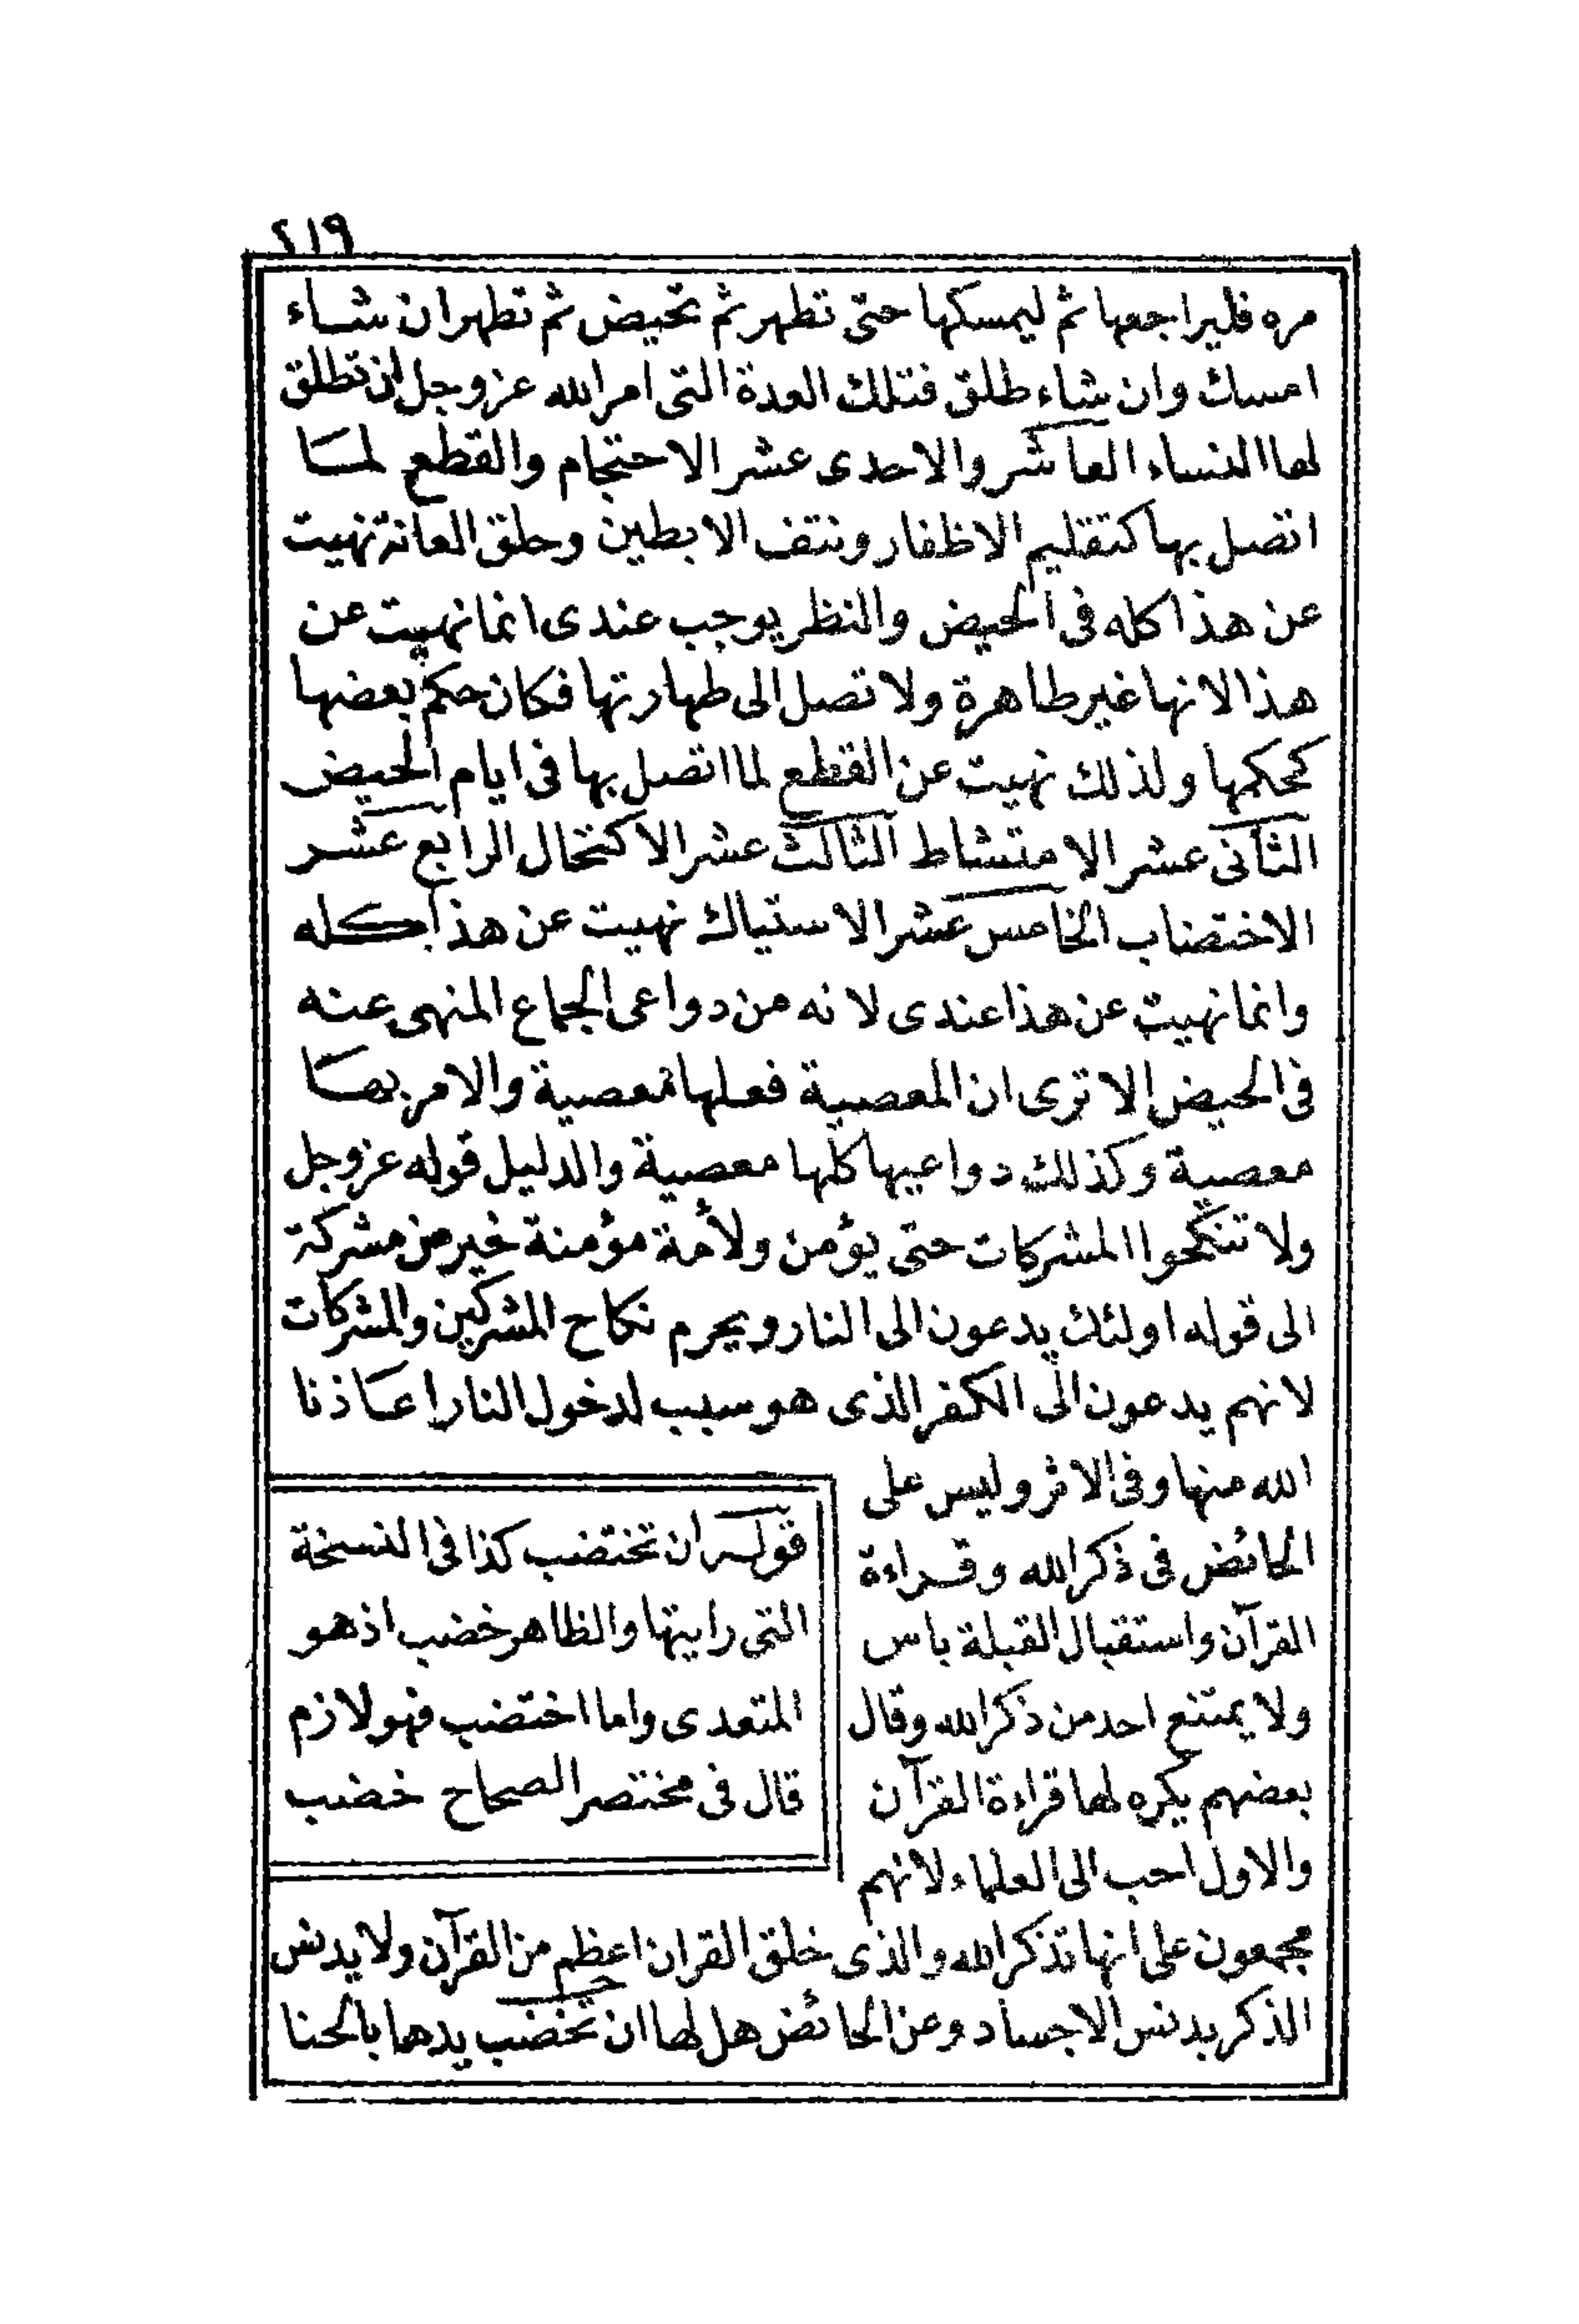 ٢١٩
مره فليراجعها ثم ليمسكها حتى تطهر ثم تحيض ثم تطهر ان شاء
امسك وان شاء طلق فتلك العدة التى امر الله عز وجل ان تطلق
لها النساء العاشر والاحدى عشر الاحتجام والقطع لما
اتصل بها كتقليم الاظفار ونتف الابطين وحلق العانة نهيت
عن هذا كله فى الحيض والنظر يوجب عندى انما نهيت عن
هذا لانها غير طاهرة ولا تصل الى طهارتها فكان حكم بعضها
كحكمها ولذلك نهيت عن القطع لما اتصل بها فى ايام الحيض
الثانى عشر الامتشاط الثالث عشر الاكتحال الرابع عشر
الاختضاب الخامس عشر الاستياك نهيت عن هذا كله
وانما نهيت عن هذا عندى لانه من دواعى الجماع المنهى عنه
فى الحيض الا ترى ان المعصية فعلها معصية والامر بها
معصية وكذلك دواعيها كلها معصية والدليل قوله عز وجل
ولا تنكحوا المشركات حتى يؤمن ولأمة مؤمنة خير من مشركة
الى قوله اولئك يدعون الى النار ويحرم نكاح المشركين والمشركات
لانهم يدعون الى الكفر الذى هو سبب لدخول النار اعاذنا
الله منها وفى الاثر وليس على
الحائض فى ذكر الله وقراءة
القرآن واستقبال القبلة باس
ولا يمتنع احد من ذكر الله وقال
بعضهم يكره لها قراءة القرآن
والاول احب الى العلماء لانهم
مجمعون على انها تذكر الله والذى خلق القران اعظم من القرآن ولا يدنس
الذكر بدنس الاجساد وعن الحائض هل لها ان تخضب يدها بالحنا
قوله ان تختضب كذا فى النسخة
التى رايتها والظاهر خضب اذ هو
المتعدى واما اختضب فهو لازم
قال فى مختصر الصحاح خضب